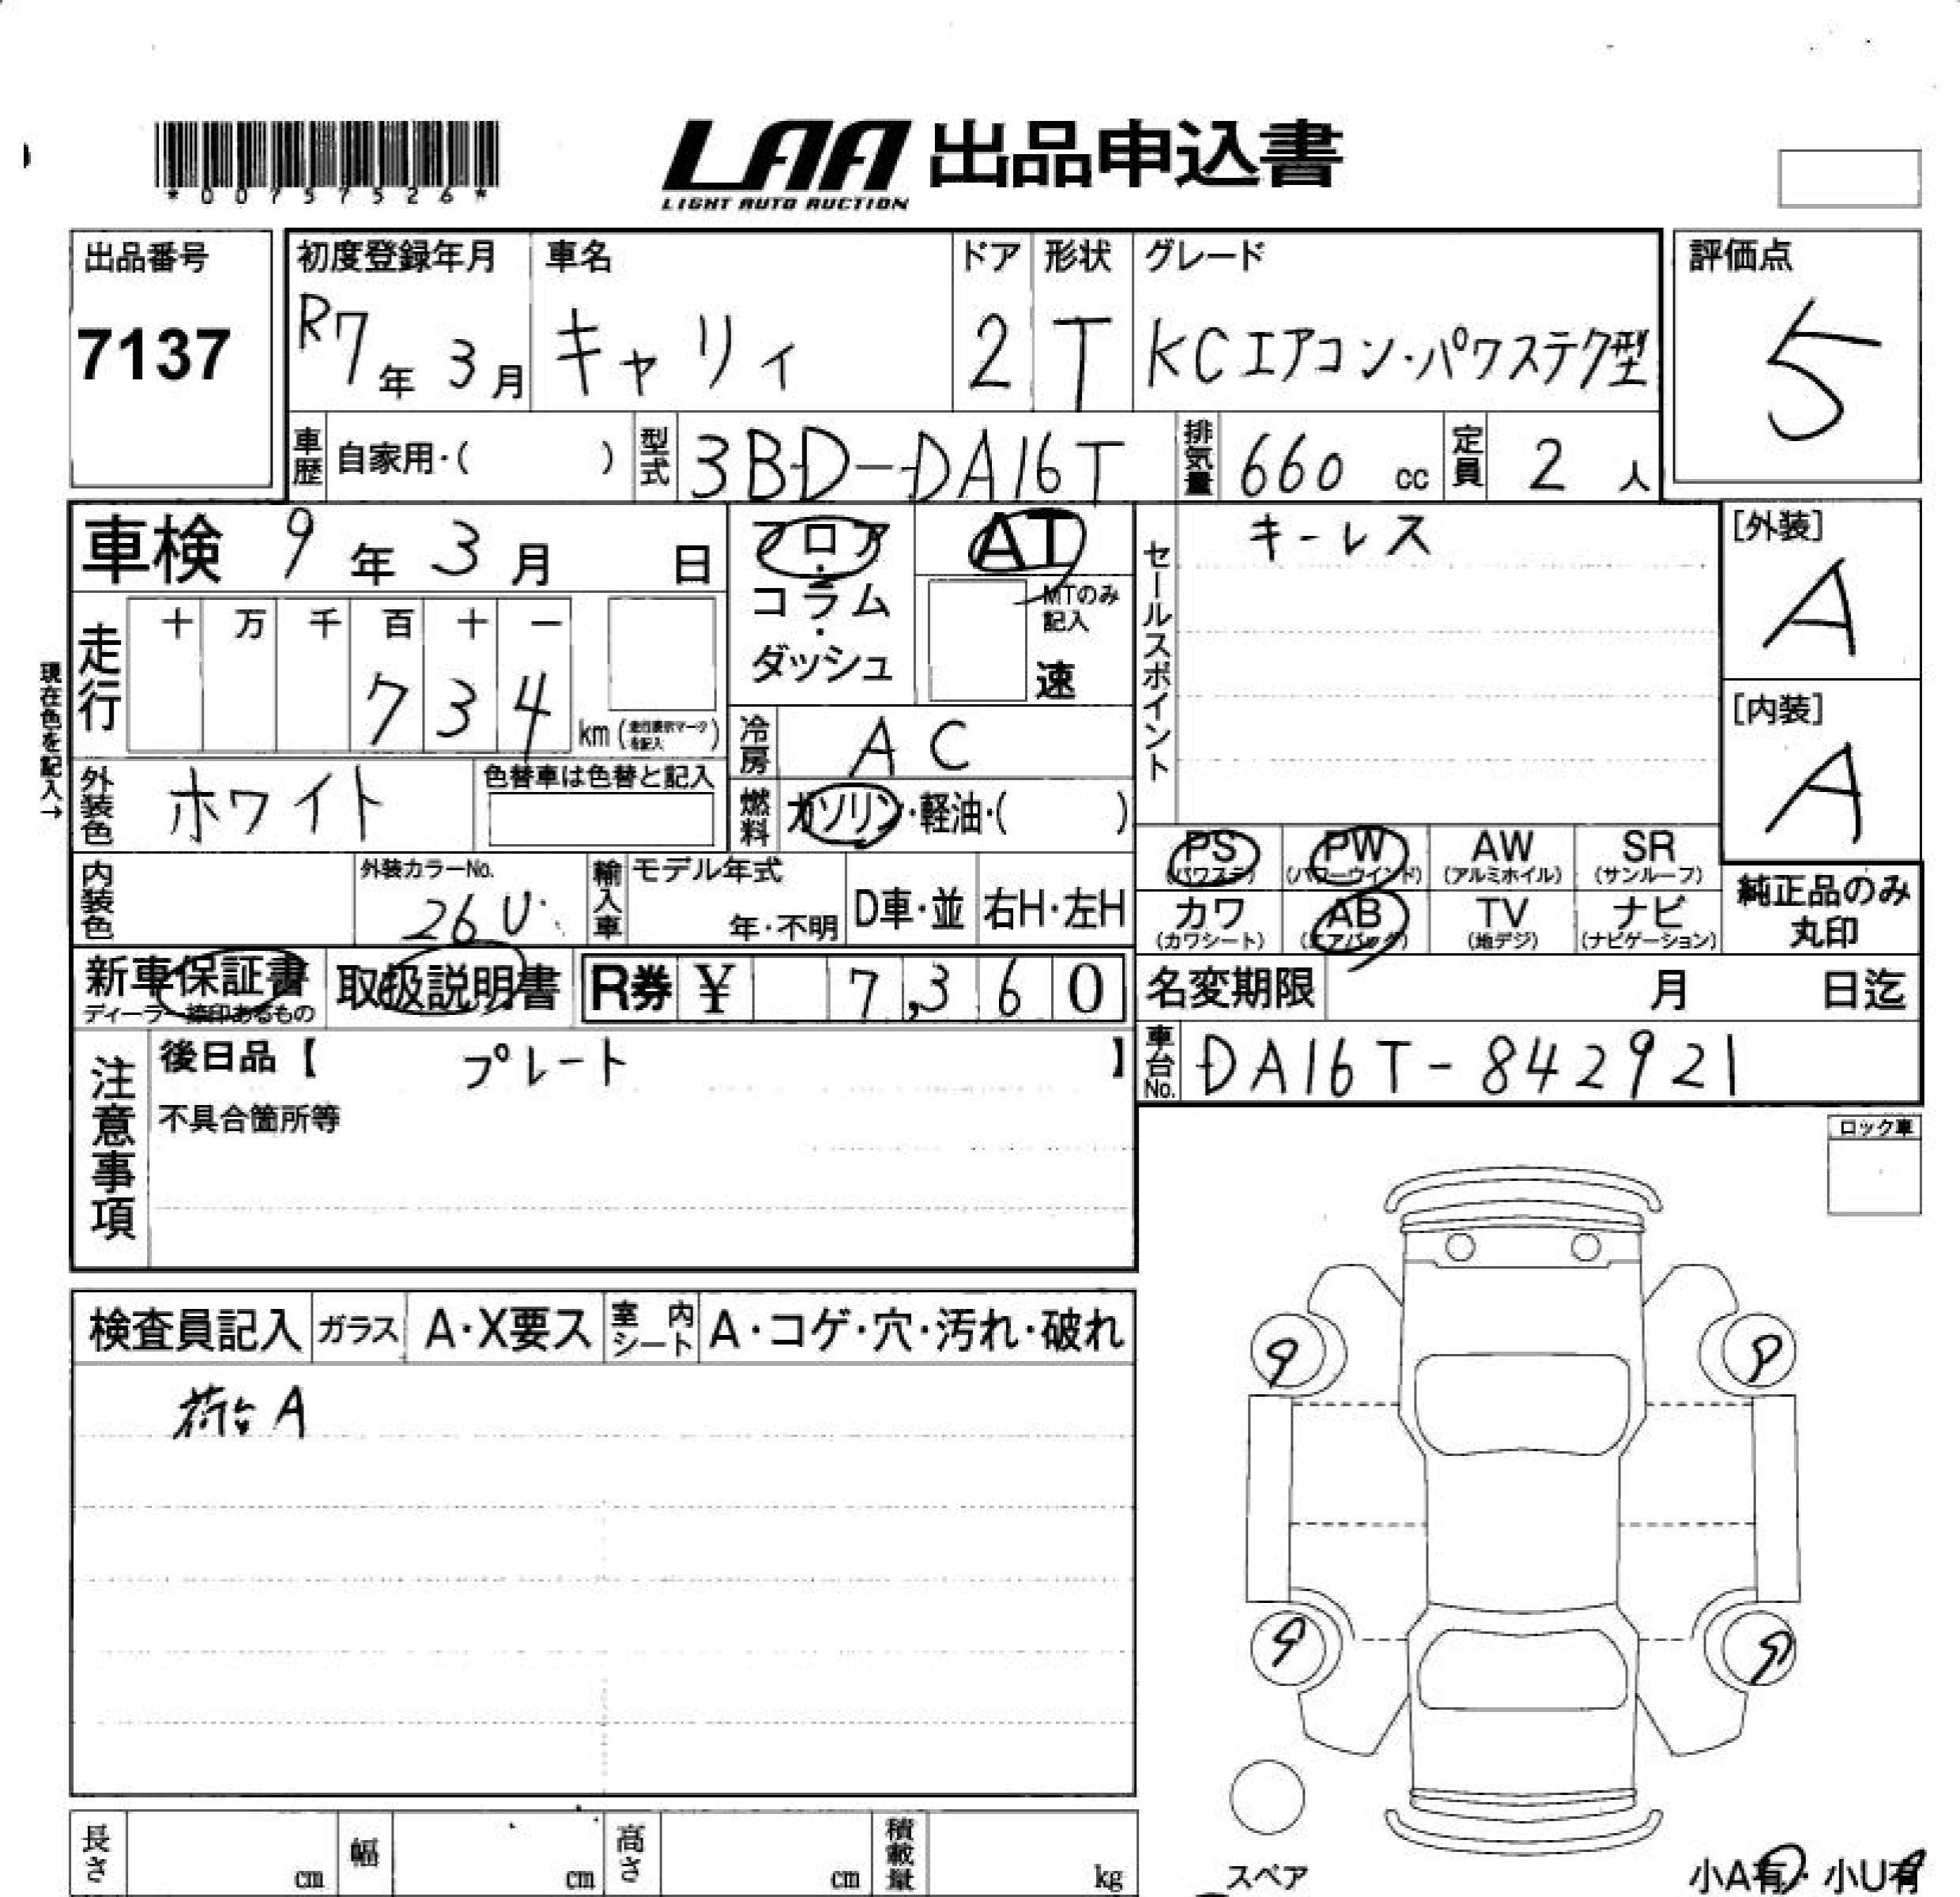 *0075 7526*
LAA 出品申込書
LIGHT AUTO AUCTION
出品番号
7137
初度登録年月
R7年 3月
車名
キャリィ
ドア
2
形状
T
グレード
KCエアコン・パワステク型
評価点
5
車歴 自家用・( )
型式 3BD-DA16T
排気量 660 cc
定員 2 人
車検 9年 3月 日
フロア・コラム・ダッシュ
AT
MTのみ記入
速
セールスポイント
キーレス
[外装]
A
[内装]
A
現在色を記入→
走行
十 万 千 百 十 一
7 3 4
km(走行表示マークを記入)
冷房 AC
外装色 ホワイト
色替車は色替と記入
燃料 ガソリン・軽油・( )
PS (パワステ)
PW (パワーウインド)
AW (アルミホイル)
SR (サンルーフ)
カワ (カワシート)
AB (エアバッグ)
TV (地デジ)
ナビ (ナビゲーション)
純正品のみ丸印
内装色
外装カラーNo.
26U
輸入車
モデル年式
年・不明
D車・並
右H・左H
新車保証書
ディーラー捺印あるもの
取扱説明書
R券 ¥ 7,360
名変期限 月 日迄
車台No. DA16T-842921
注意事項
後日品【 プレート 】
不具合箇所等
ロック車
検査員記入
ガラス A・X要ス
室内シート A・コゲ・穴・汚れ・破れ
荷台A
9 9
9 9
スペア
長さ cm
幅 cm
高さ cm
積載量 kg
小A有・小U有